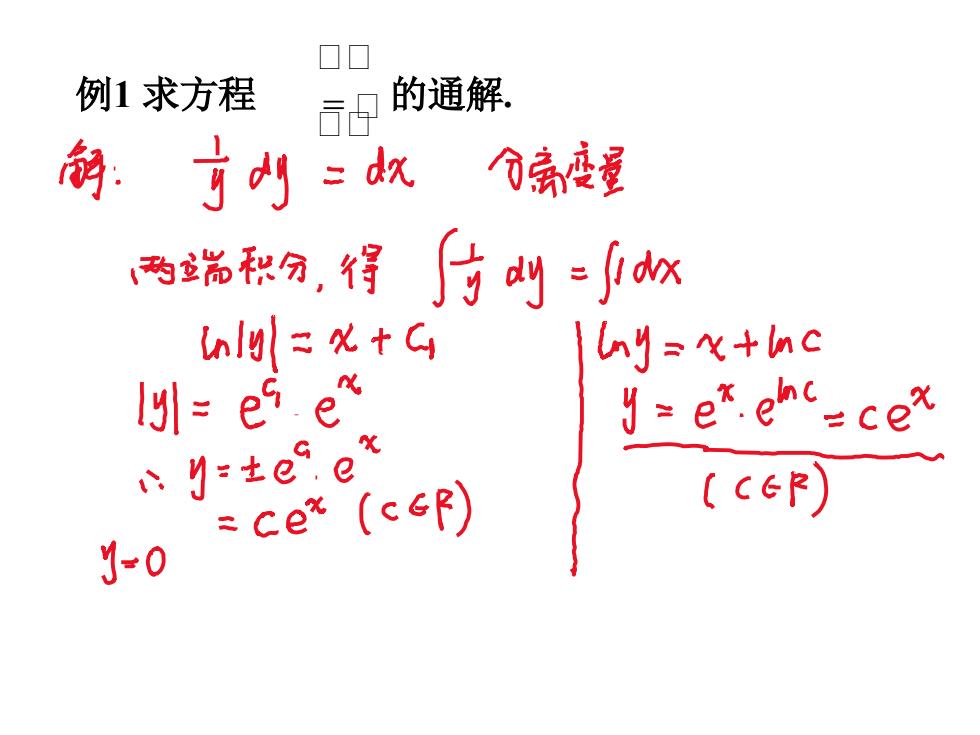 例1 求方程 □□ = □ □□ 的通解.
解: 1/y dy = dx 分离变量
两端积分, 得 ∫ 1/y dy = ∫ 1 dx
ln|y| = x + C₁
|y| = e^C₁ · e^x
∴ y = ± e^C₁ · e^x
= c e^x (c ∈ R)
y = 0
ln y = x + ln c
y = e^x · e^ln c = c e^x
( c ∈ R )